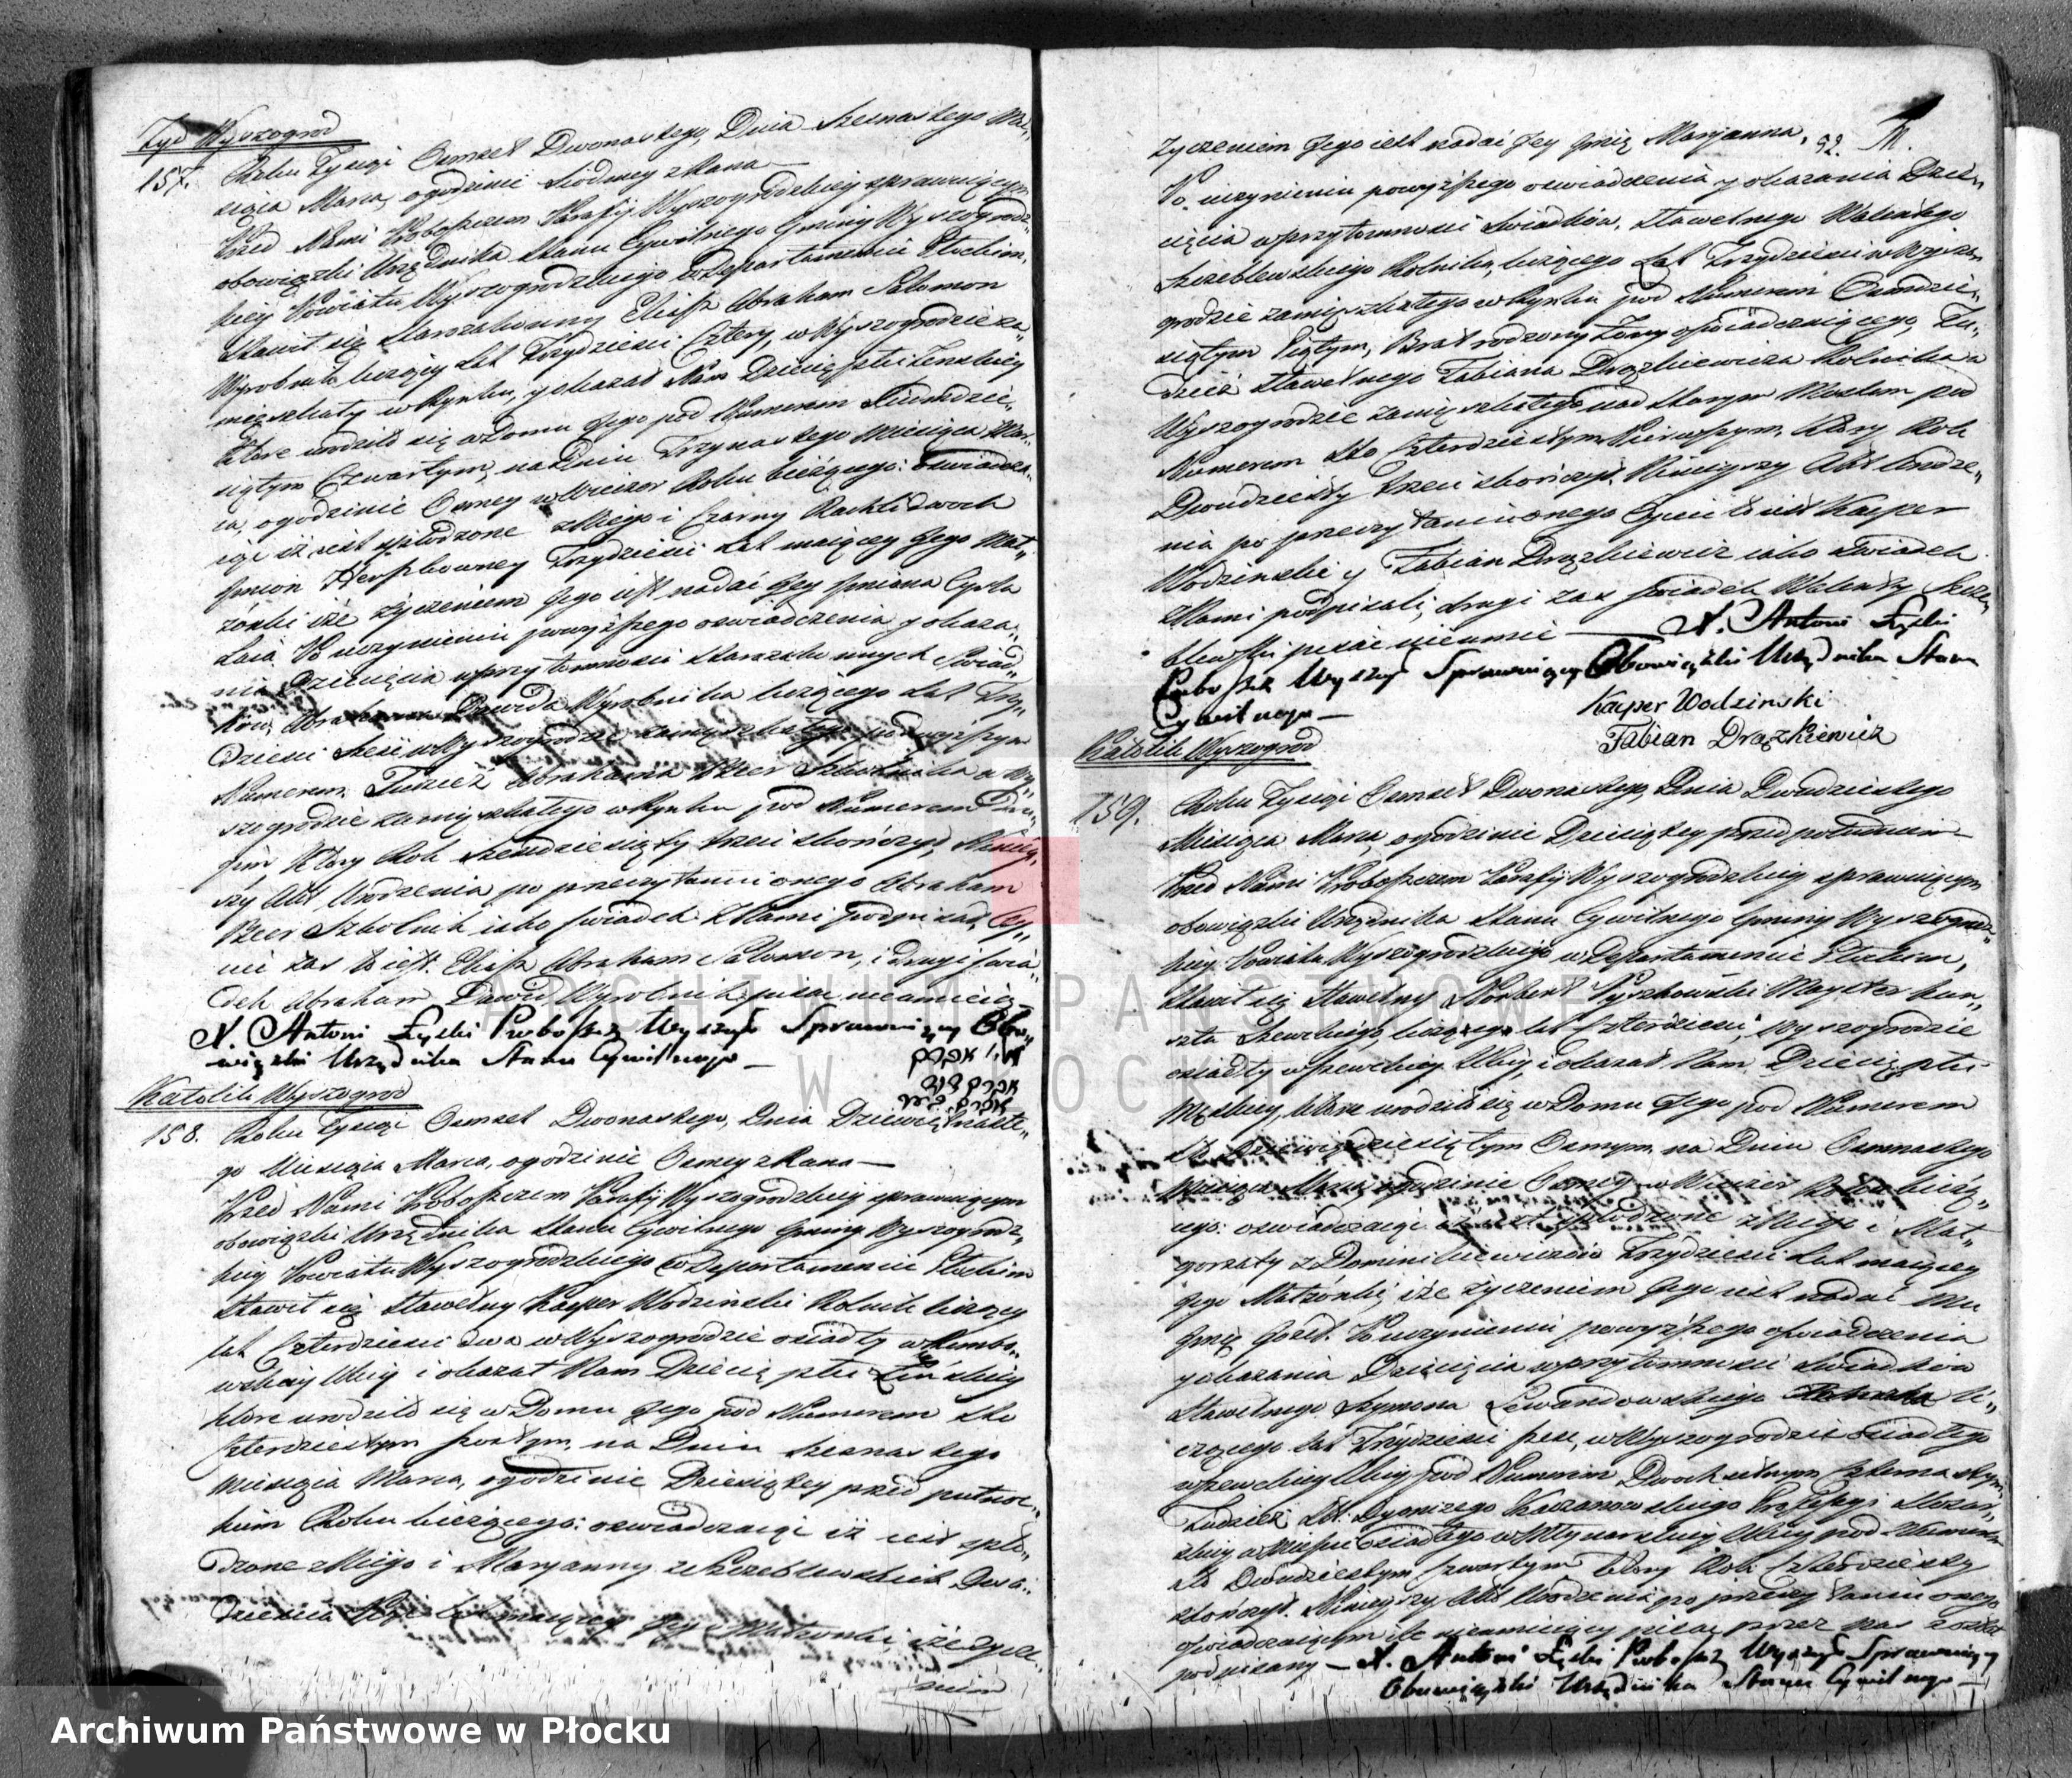 Żyd Wyszogrod
157. Roku Tysiąc Osmset Dwonastego, Dnia Szesnastego Mie„
siąca Marca, ogodzinie Siodmey zRana —
Przed Nami Proboszczem Parafij Wyszogrodzkiey sprawuiącym
obowiązki Urzędnika Stanu Cywilnego Gminy Wyszogrodz„
kiey Powiatu Wyszogrodzkiego w Departamencie Płockim,
Stawił się Starozakonny Eliasz Abraham Salomon
Wyrobnik liczący Lat Trzydzieści Cztery, w Wyszogrodzie za„
mięszkały w Rynku, y okazał Nam Dziecię płci Zenskiey
które urodziło się w Domu Jego pod Numerem Siedmdzie„
siątym Czwartym, na Dniu Trzynastego Miesiąca Mar„
ca, ogodzinie Osmey w Wieczor Roku bieżącego: oświadcza„
iąc iż iest spłodzone z Niego i Czarny Rachli dwoch
Jmion Herszkowney Trzydzieści Lat maiącey Jego Mał„
żonki iże życzeniem Jego iest nadać Jey Jmiona Cyrla
Laia. Po uczynieniu powyższego oswiadczenia y okaza„
nia Dziecięcia w przytomności Starozakonnych Swiad„
kow, Abrahama Dawida Wyrobnika liczącego Lat Trzy„
dzieści Sześć w Wyszogrodzie zamięszkałego pod wyższym
Numerem. Tudzież Abrahama Beer Szkolnika w Wy„
szogrodzie zamięszkałego w Rynku pod Numerem Dru„
gim Ktory Rok Szesdziesiąty trzeci skończył, Niniey„
szy Akt Urodzenia po przeczytaniu onego Abraham
Beer Szkolnik iako swiadek z Nami podpisał, Oy„
ciec zas to iest Eliasz Abraham Salomon, i drugi swia„
dek Abraham Dawid Wyrobnik pisac nieumieią
X. Antoni Łęski Proboszcz Wyszogr Sprawuiący Obo„
wiązki Urzędnika Stanu Cywilnego —
Katolik Wyszogrod
158. Roku Tysiąc Osmset Dwonastego, Dnia Dziewiętnaste„
go Miesiąca Marca, ogodzinie Osmey z Rana —
Przed Nami Proboszczem Parafij Wyszogrodzkiey sprawuiącym
obowiązki Urzędnika Stanu Cywilnego Gminy Wyszogrodz„
kiey Powiatu Wyszogrodzkiego w Departamencie Płockim
Stawił się Sławetny Kasper Wodzinski Rolnik liczący
lat Czterdzieści dwa w Wyszogrodzie osiadły w Rembo„
wskiey Ulicy i okazał Nam Dziecię płci Żeńskiey
które urodziło się w Domu Jego pod Numerem Sto
Czterdziestym szostym, na Dniu Szesnastego
Miesiąca Marca, ogodzinie Dziesiątey przed połnoc„
kiem Roku bieżącego: oswiadczaiąc iż iest spło„
dzone z Niego i Maryanny ze Szczeblewskich Dwa„
dziescia Lat maiącey Jego Małzonki, iże życze„
niem
92.
życzeniem Jego iest nadać Jey Jmię Maryanna,
Po uczynieniu powyższego oswiadczenia y okazania Dzie„
cięcia w przytomnosci Swiadkow, Sławetnego Walentego
Szczeblewskiego Rolnika, liczącego Lat Trzydzieści w Wyszo„
grodzie zamięszkałego w Rynku pod Numerem Osmdzie„
siątym Piątym, Brat rodzony Żony oswiadczaiącego, Tu„
dzież Sławetnego Fabiana Drążkiewicza Rolnika w
Wyszogrodzie zamięszkałego nad Starym Mostem pod
Numerem Sto Czterdziestym Pierwszym, Ktory Rok
Dwudziesty trzeci skończył. Ninieyszy Akt Urodze„
nia po przeczytaniu onego Oyciec to iest Kasper
Wodzinski y Fabian Drążkiewicz iako swiadek
z Nami podpisali; drugi zas swiadek Walenty Szcze„
blewski pisać nieumie — X. Antoni Łęski
Proboszcz Wyszogr Sprawuiący Obowiązki Urzędnika Stanu
Cywilnego —
Kasper Wodzinski
Fabian Drązkiewicz
Katolik Wyszogrod
159. Roku Tysiąc Osmset Dwonastego, Dnia Dwudziestego
Miesiąca Marca, ogodzinie Dziesiątey przed południem —
Przed Nami Proboszczem Parafij Wyszogrodzkiey sprawuiącym
obowiązki Urzędnika Stanu Cywilnego Gminy Wyszogrodz„
kiey Powiatu Wyszogrodzkiego w Departamencie Płockim,
Stawił się Sławetny Norbert Pyszkowski Mayster kun„
sztu Szewckiego, liczącego lat Czterdzieści, w Wyszogrodzie
osiadły w Szewckiey Ulicy, i okazał Nam Dziecię płci
Męskiey, które urodziło się w Domu Jego pod Numerem
Sto Dziewiędziesiątym Osmym, na Dniu Osmnastego
Miesiąca Marca ogodzinie Osmey w Wieczor Roku bieżą„
cego: oswiadczaiąc iż iest spłodzone z Niego i Mał„
gorzaty z Dominikiewiczow Trzydzieści Lat maiącey
Jego Małżonki, iże życzeniem Jego iest nadać Mu
Jmię Jozef. Po uczynieniu powyższego oswiadczenia
y okazania Dziecięcia w przytomnosci Swiadkow
Sławetnego Szymona Lewandowskiego li„
czącego lat Trzydzieści sześć, w Wyszogrodzie osiadłego
w Szewckiey Ulicy pod Numerem Dwochsetnym Czternastym,
Tudzież Dyonizego Kazanowskiego
w Mieście osiadłego w Młynarskiey Ulicy pod Numerem
Sto Dwudziestym czwartym ktory Rok Czterdziesty
skończył. Ninieyszy Akt Urodzenia po przeczytaniu onego
oswiadczaiącym iż nieumieiący pisać przez nas został
podpisany — X. Antoni Łęski Proboszcz Wyszogr Sprawuiący
Obowiązki Urzędnika Stanu Cywilnego —
ARCHIWUM PAŃSTWOWE
W PŁOCKU
Archiwum Państwowe w Płocku